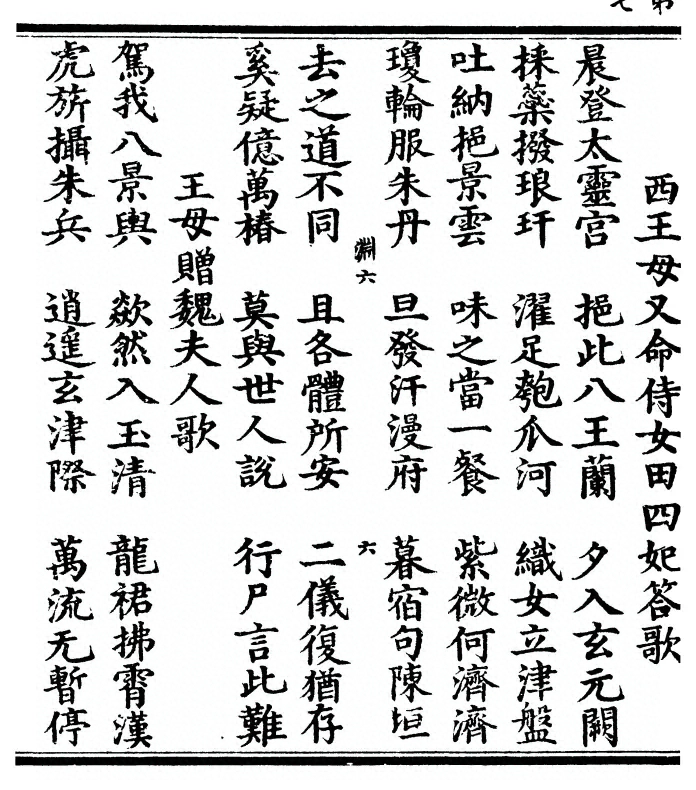 西王母又命侍女田四妃答歌
晨登太靈宫 挹此八王蘭 夕入玄元闕
採藥掇琅玕 濯足匏瓜河 織女立津盤
吐納挹景雲 味之當一餐 紫微何濟濟
瓊輪服朱丹 旦發汗漫府 暮宿句陳垣
淵六 六
去之道不同 且各體所安 二儀復猶存
奚疑億萬椿 莫與世人說 行尸言此難
王母贈魏夫人歌
駕我八景輿 欻然入玉清 龍裙拂霄漢
虎旂攝朱兵 逍遥玄津際 萬流无暫停